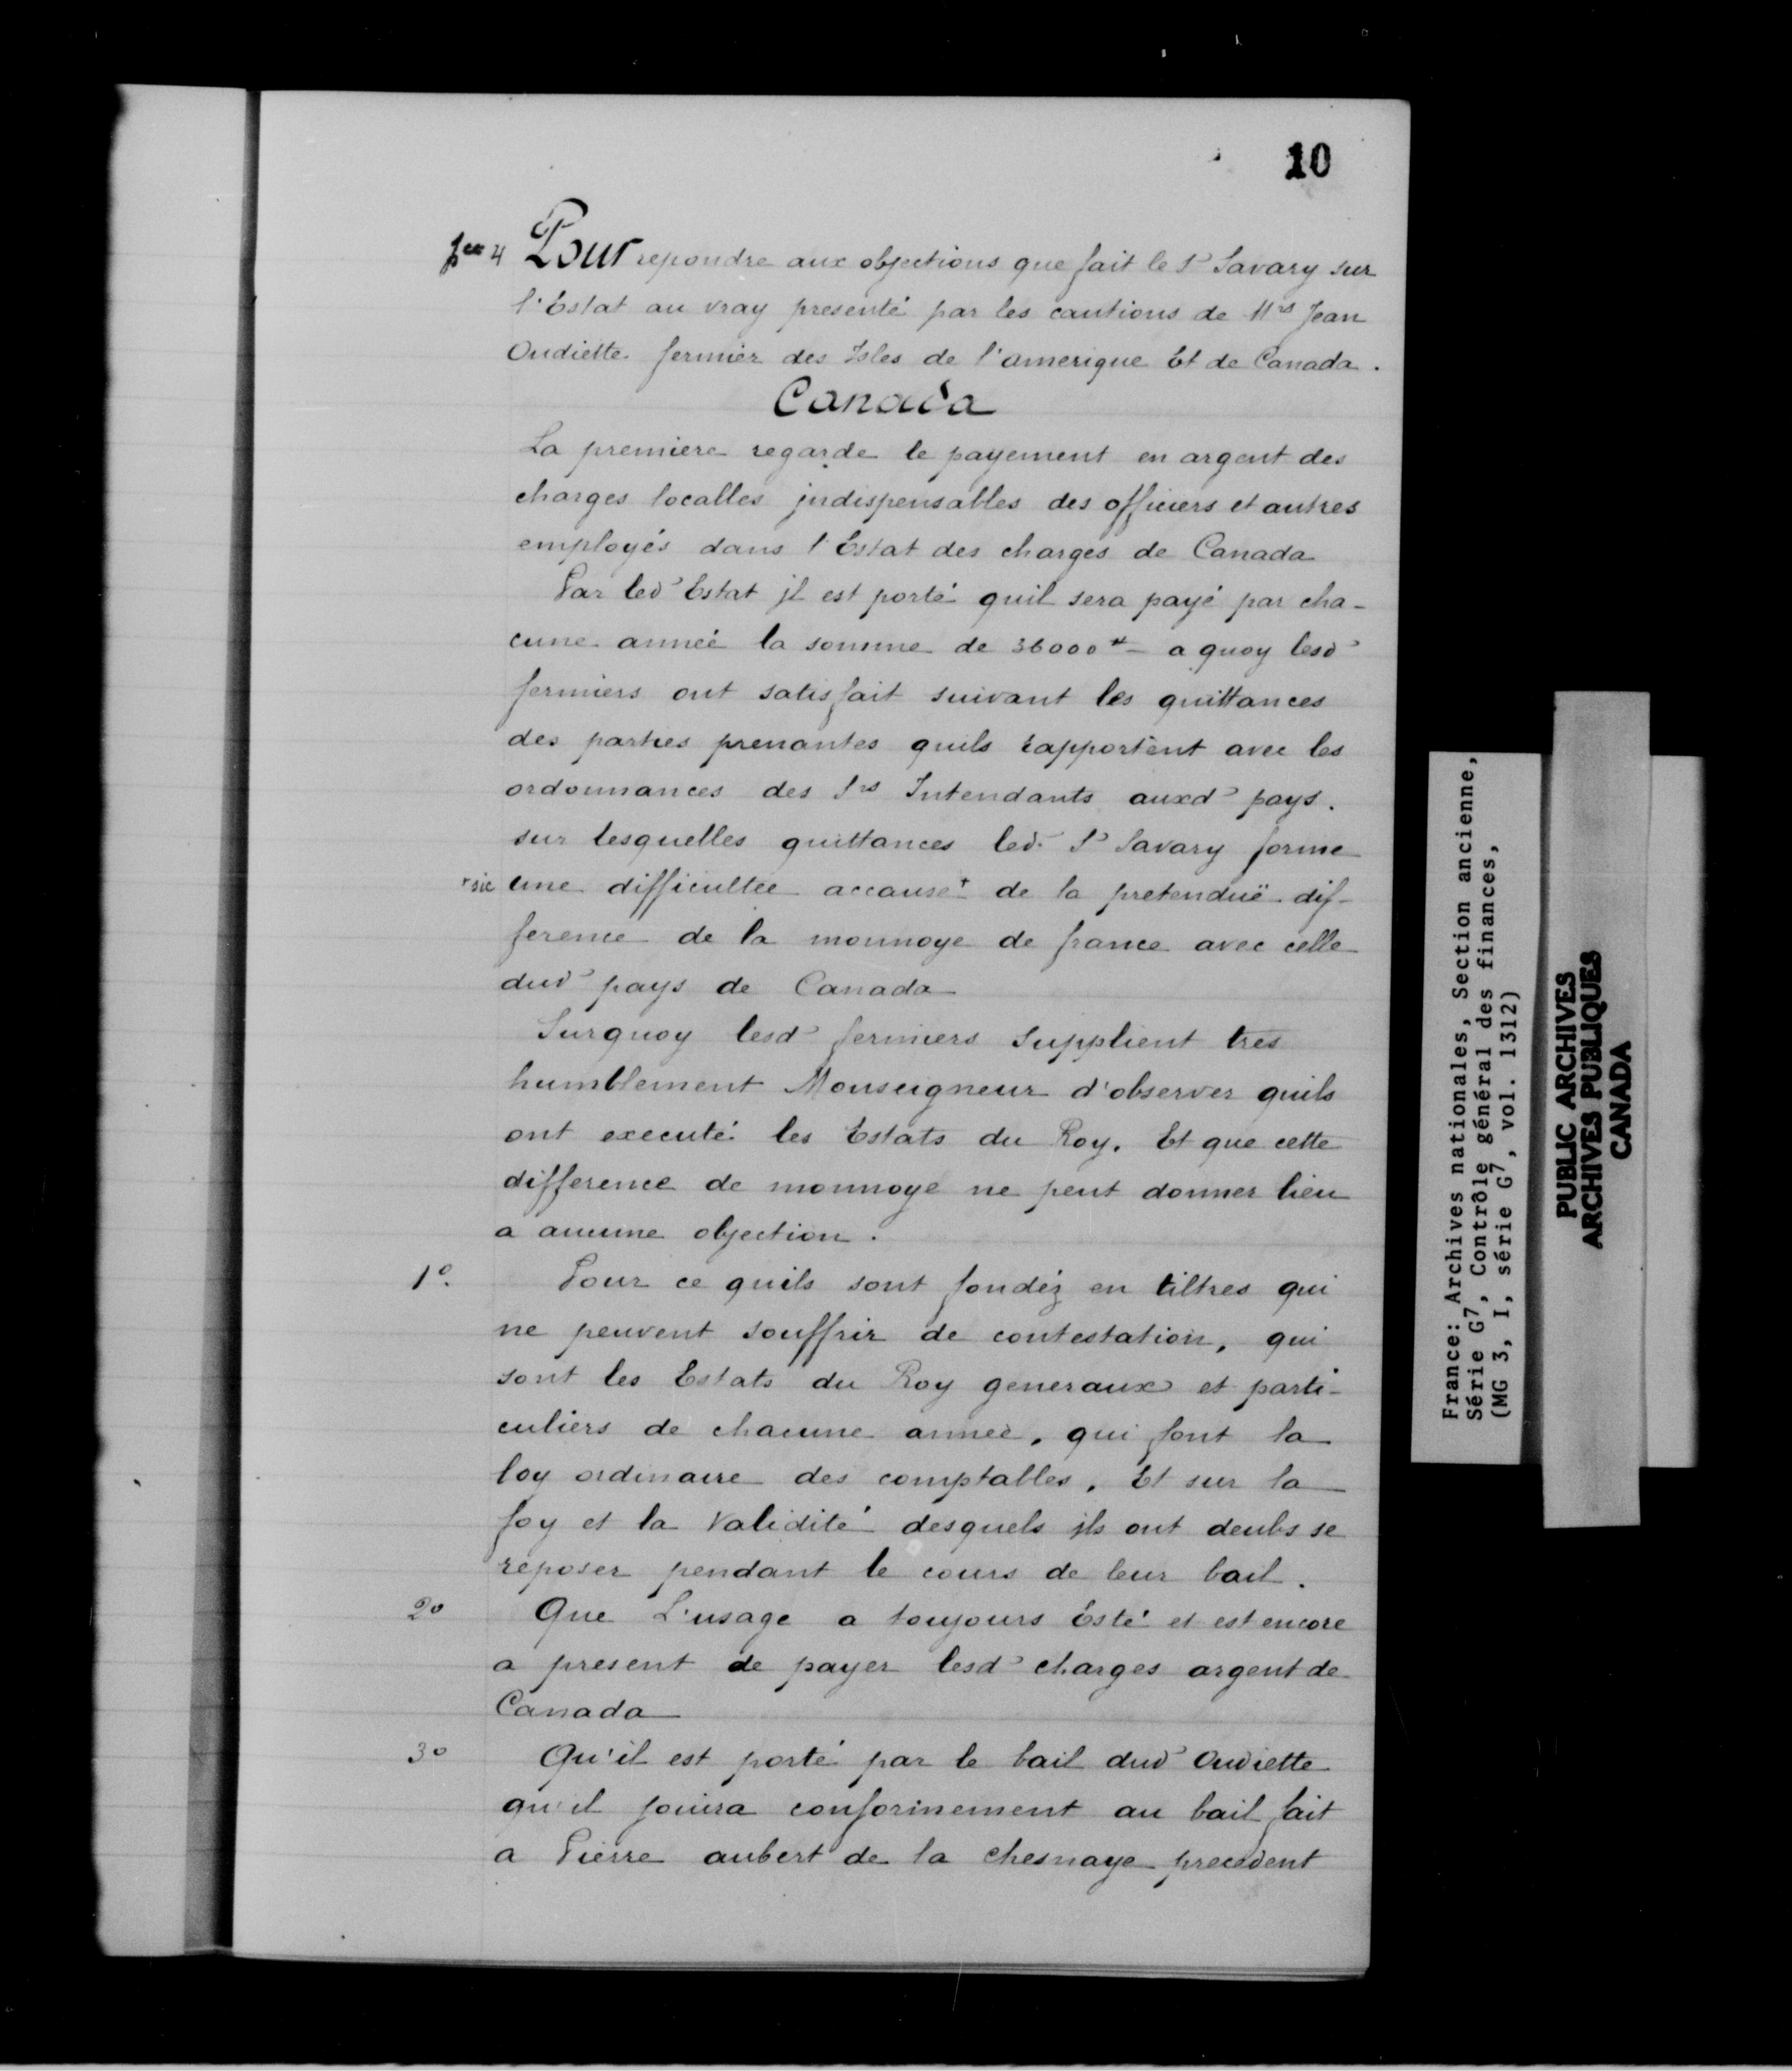 10
pce 4 Pour repondre aux objections que fait le Sr Savary sur
l'Estat au vray presenté par les cautions de Mrs Jean
Oudiette fermier des Isles de l'amerique Et de Canada.
Canada
La premiere regarde le payement en argent des
charges localles jndispensables des officiers et autres
employés dans l'Estat des charges de Canada
Par led Estat jl est porté quil sera payé par cha-
cune année la somme de 36000 # a quoy lesd
fermiers ont satisfait suivant les quittances
des parties prenantes quils rapportent avec les
ordonnances des Srs Intendants auxd pays.
sur lesquelles quittances led. Sr Savary forme
+sic une difficultée accause+ de la pretenduë dif-
ference de la monnoye de france avec celle
dud pays de Canada
Surquoy lesd fermiers Supplient tres
humblement Monseigneur d'observer quils
ont executé les Estats du Roy. Et que cette
difference de monnoye ne peut donner lieu
a aucune objection.
1º. Pour ce quils sont fondéz en tiltres qui
ne peuvent souffrir de contestation, qui
sont les Estats du Roy generaux et parti-
culiers de chacune année, qui font la
loy ordinaire des comptables, Et sur la
foy et la Validité desquels jls ont deubs se
reposer pendant le cours de leur bail.
2º Que L'usage a toujours Esté et est encore
a present de payer lesd charges argent de
Canada
3º Qu'il est porté par le bail dud Oudiette
qu'il jouira conformement au bail fait
a Pierre aubert de la chesnaye precedent
France: Archives nationales, Section ancienne,
Série G7, Contrôle général des finances,
(MG 3, I, série G7, vol. 1312)
PUBLIC ARCHIVES
ARCHIVES PUBLIQUES
CANADA